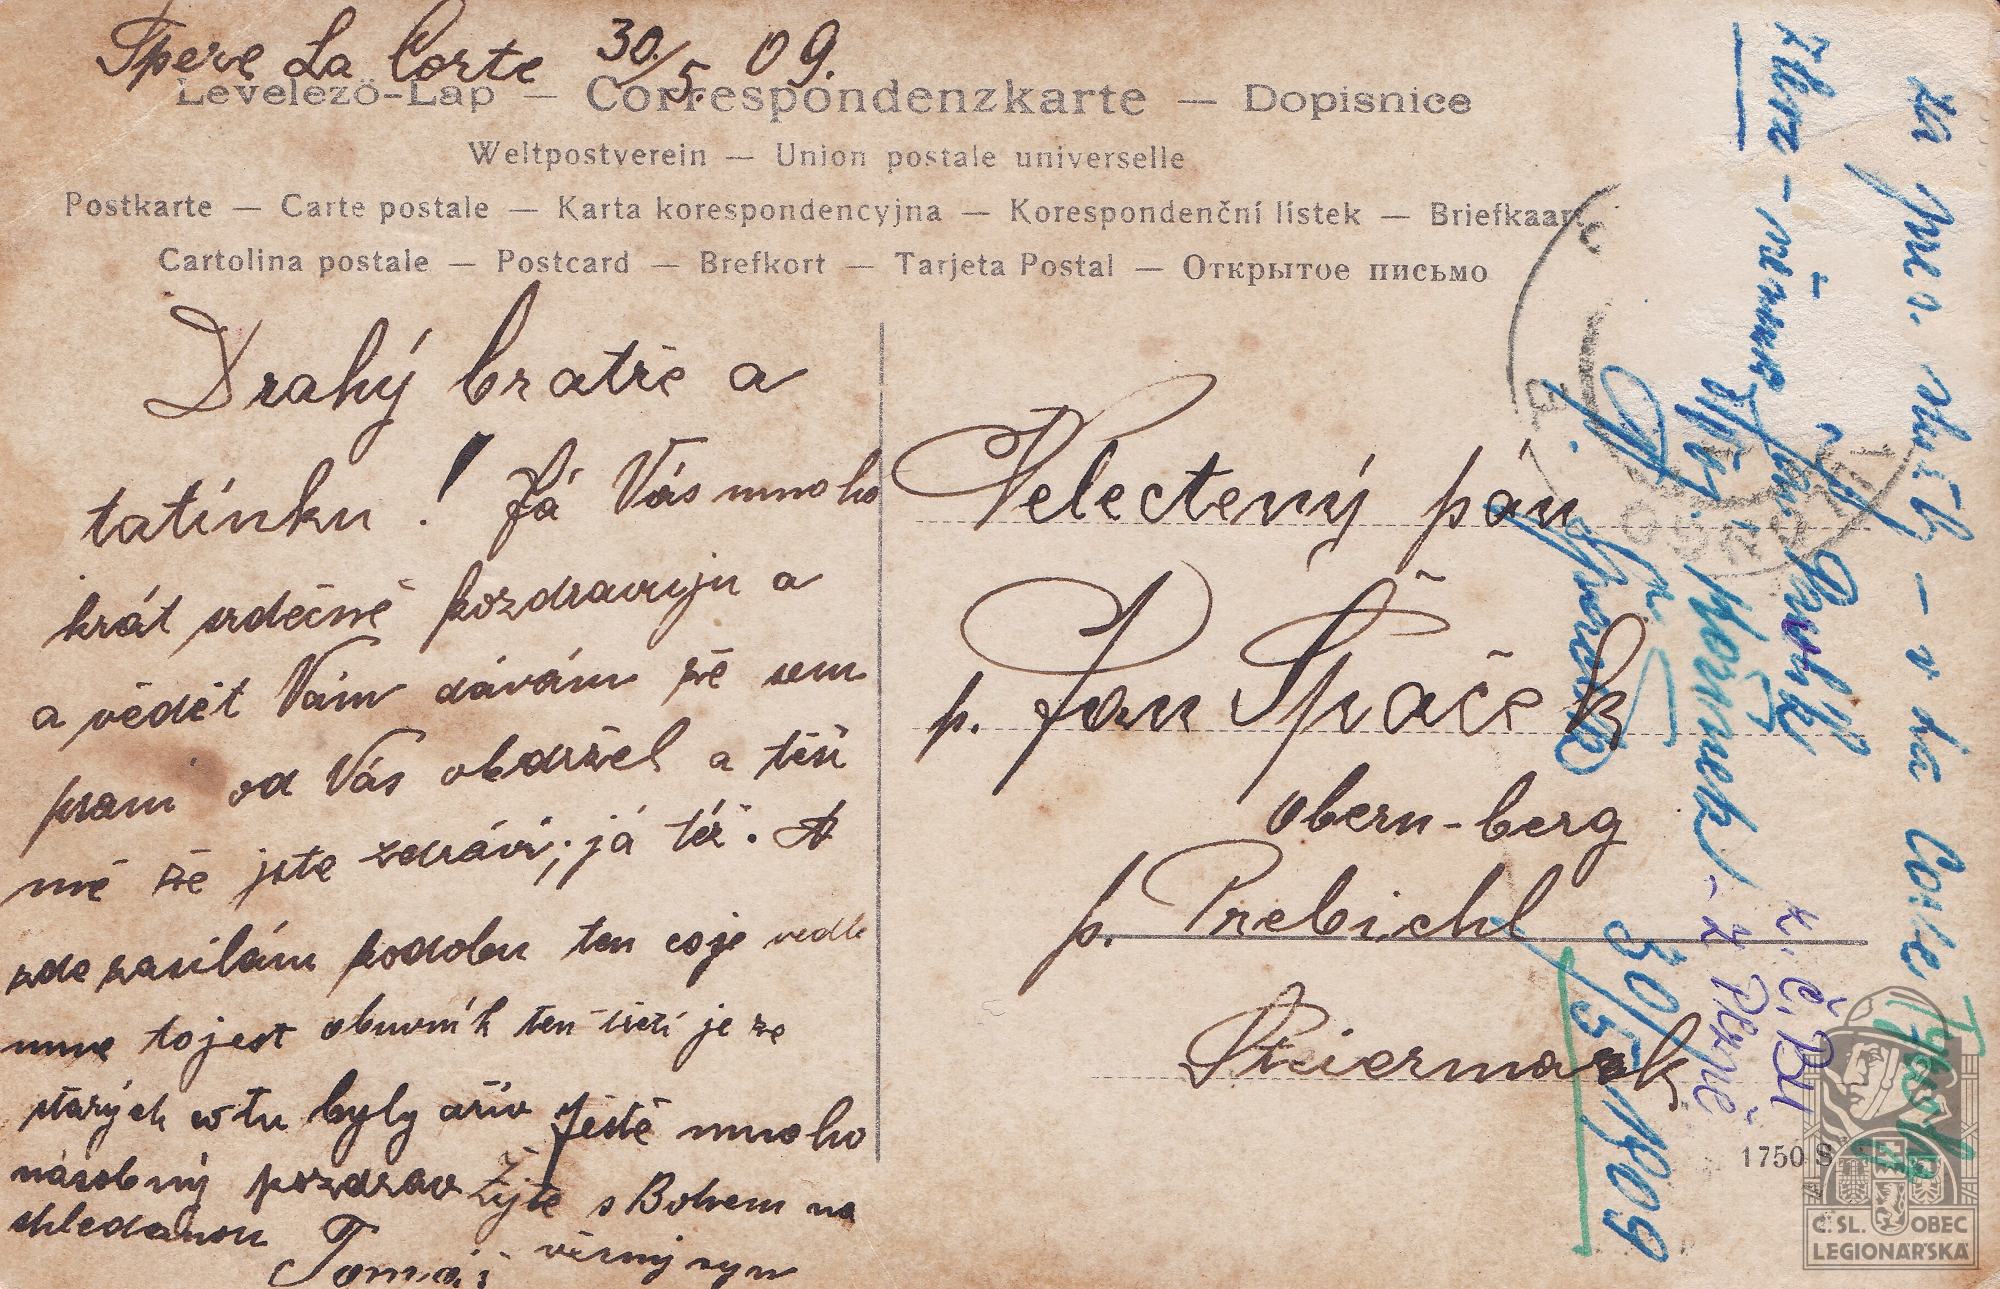 Spere La Corte 30./5. 09.
Levelező-Lap — Correspondenzkarte — Dopisnice
Weltpostverein — Union postale universelle
Postkarte — Carte postale — Karta korespondencyjna — Korespondenční lístek — Briefkaart
Cartolina postale — Postcard — Brefkort — Tarjeta Postal — Открытое письмо
Drahý bratře a
tatínku! Já Vás mnoho
krát srdečně pozdravuju a
a vědět Vám dávám že sem
psaní od Vás obdržel a těší
mě že jste zdrávi, já též. A
zde zasílám podobu ten co je vedle
mne to jest obuvník ten třetí je ze
starých co tu byly Ještě mnoho
násobný pozdrav Žijte s Bohem na
shledanou věrný syn
Tomáš
Velectený pán
p. Jan Špaček
Obern-berg
p. Prebichl
Steiermark
1750 S
na pres. službě – v La Corte
30/5 1909
z Plzně
z Č. Bu
Č. SL. OBEC
LEGIONÁŘSKÁ